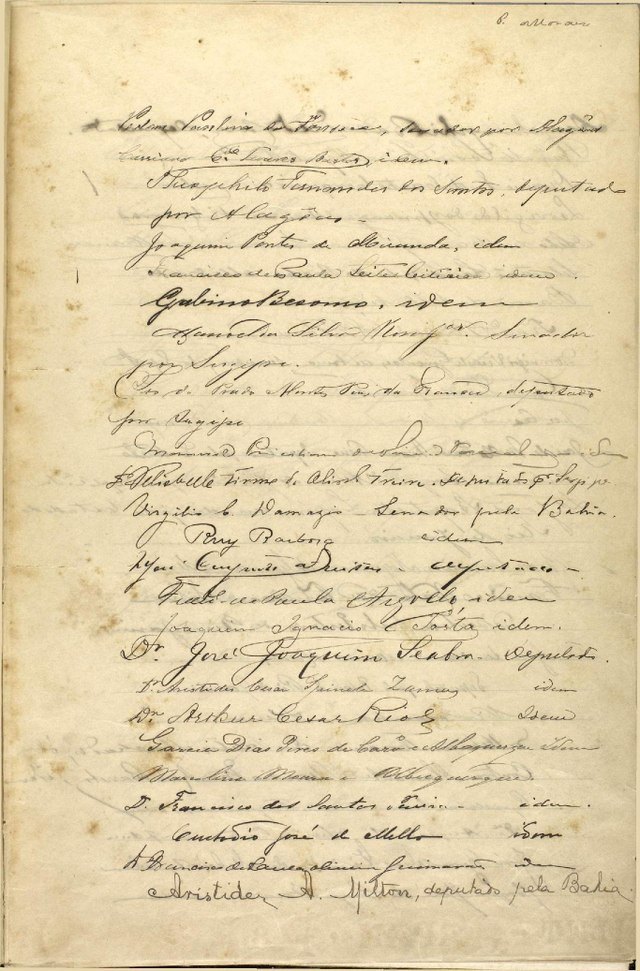 P. Moraes
Pedro Paulino da Fonseca, senador por Alagôas
Cassiano Cdo Tavares Bastos, idem.
Theophilo Fernandes dos Santos, deputado
por Alagôas -
Joaquim Pontes de Miranda, idem
Francisco de Paula Leite idem
Gabino Besouro, idem
Manoel da Silva Rosa Jor. Senador
por Sergipe.
Ivo do Prado Montes Pires da França, deputado
por Sergipe
Manoel
Dr Felisbello Firme de Oliva Freire. Deputado pr Sergipe
Virgilio C. Damazio - Senador pela Bahia.
Ruy Barbosa idem
José - deputado -
Franco de Paula Argollo idem
Joaquim Ignacio Tosta idem.
Dr. José Joaquim Seabra - Deputado.
Dr Aristides Cesar Spinola Zama idem
Dr Arthur Cesar Rios Idem
Garcia Dias Pires de Carvo e Albuquerque Idem
Marcolino Moura e Albuquerque.
D. Francisco dos Santos Pereira - idem.
Custodio José de Mello idem
Francisco de Paula Oliva Guimarães idem
Aristides A. Milton, deputado pela Bahia.